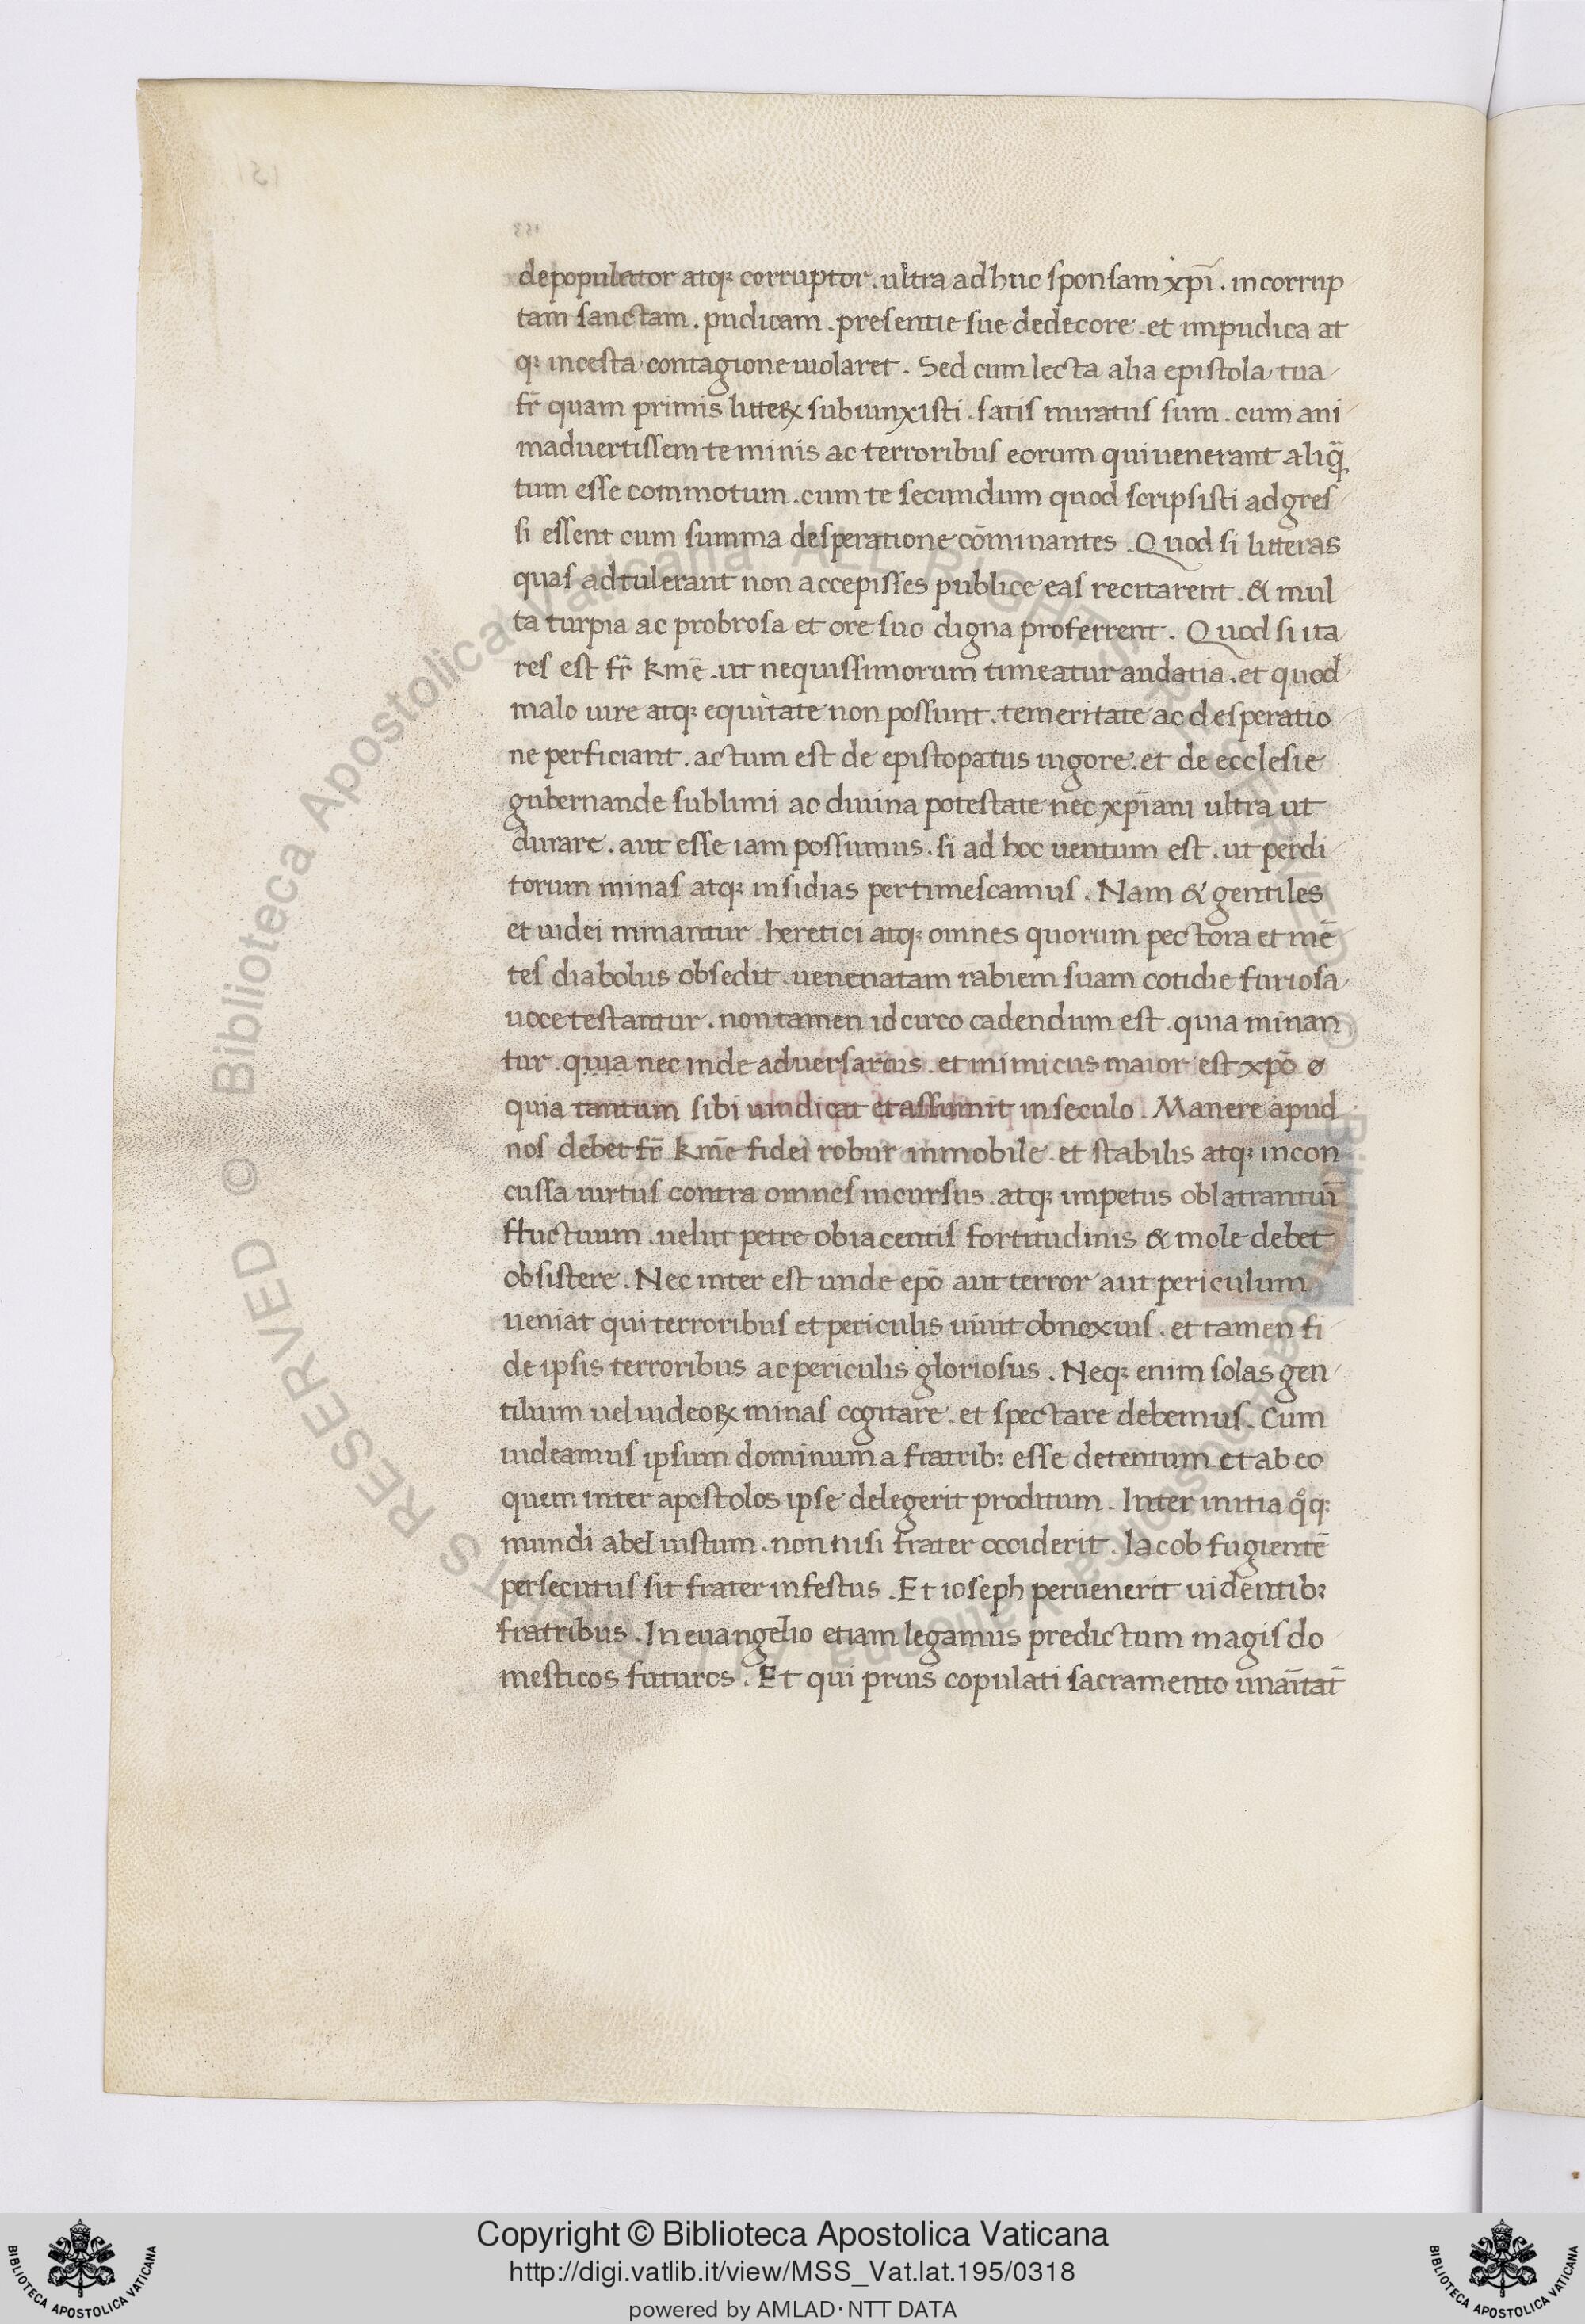 depopulator atq; corruptor . ultra ad huc sponsam xp̄i . incorrup
tam sanctam . pudicam . presentie sue dedecore . et impudica at
q; incesta contagione uiolaret . Sed cum lecta alia epistola tua
fr̄ quam primis litteꝝ subiunxisti . satis miratus sum . cum ani
maduertissem te minis ac terroribus eorum qui uenerant aliq̄
tum esse commotum . cum te secundum quod scripsisti adgres
si essent cum summa desperatione cōminantes . Quod si litteras
quas adtulerant non accepisses publice eas recitarent . & mul
ta turpia ac probrosa et ore suo digna proferrent . Quod si ita
res est fr̄ kmē . ut nequissimorum timeatur audatia . et quod
malo iure atq; equitate non possunt . temeritate ac desperatio
ne perficiant . actum est de epistopatus uigore . et de ecclesie
gubernande sublimi ac diuina potestate nec xp̄iani ultra ut
durare . aut esse iam possumus . si ad hoc uentum est . ut perdi
torum minas atq; insidias pertimescamus . Nam & gentiles
et iudei minantur . heretici atq; omnes quorum pectora et mē
tes diabolus obsedit . uenenatam rabiem suam cotidie furiosa
uoce testantur . non tamen id circo cadendum est . quia minan
tur . quia nec inde aduersarius . et inimicus maior est xp̄o ø
quia tantum sibi uindicat et assumit in seculo . Manere apud
nos debet fr̄ kmē fidei robur inmobile . et stabilis atq; incon
cussa uirtus contra omnes incursus . atq; impetus oblatrantiū
fluctuum . uelut petre obiacentis fortitudinis & mole debet
obsistere . Nec inter est unde ep̄o aut terror aut periculum
ueniat qui terroribus et periculis uiuit obnoxius . et tamen fi
de ipsis terroribus ac periculis gloriosus . Neq; enim solas gen
tilium uel iudeoꝝ minas cogitare . et spectare debemus . Cum
uideamus ipsum dominum a fratrib; esse detentum et ab eo
quem inter apostolos ipse delegerit proditum . Inter initia qͦq;
mundi abel iustum . non nisi frater occiderit . Iacob fugientē
persecutus sit frater infestus . Et ioseph peruenerit uidentib;
fratribus . In euangelio etiam legamus predictum magis do
mesticos futuros . Et qui prius copulati sacramento unāītat̄
© Biblioteca Apostolica Vaticana ALL RIGHTS RESERVED © Biblioteca Apostolica Vaticana ALL RIGHTS RESERVED
Copyright © Biblioteca Apostolica Vaticana
http://digi.vatlib.it/view/MSS_Vat.lat.195/0318
powered by AMLAD·NTT DATA
BIBLIOTECA APOSTOLICA VATICANA
BIBLIOTECA APOSTOLICA VATICANA